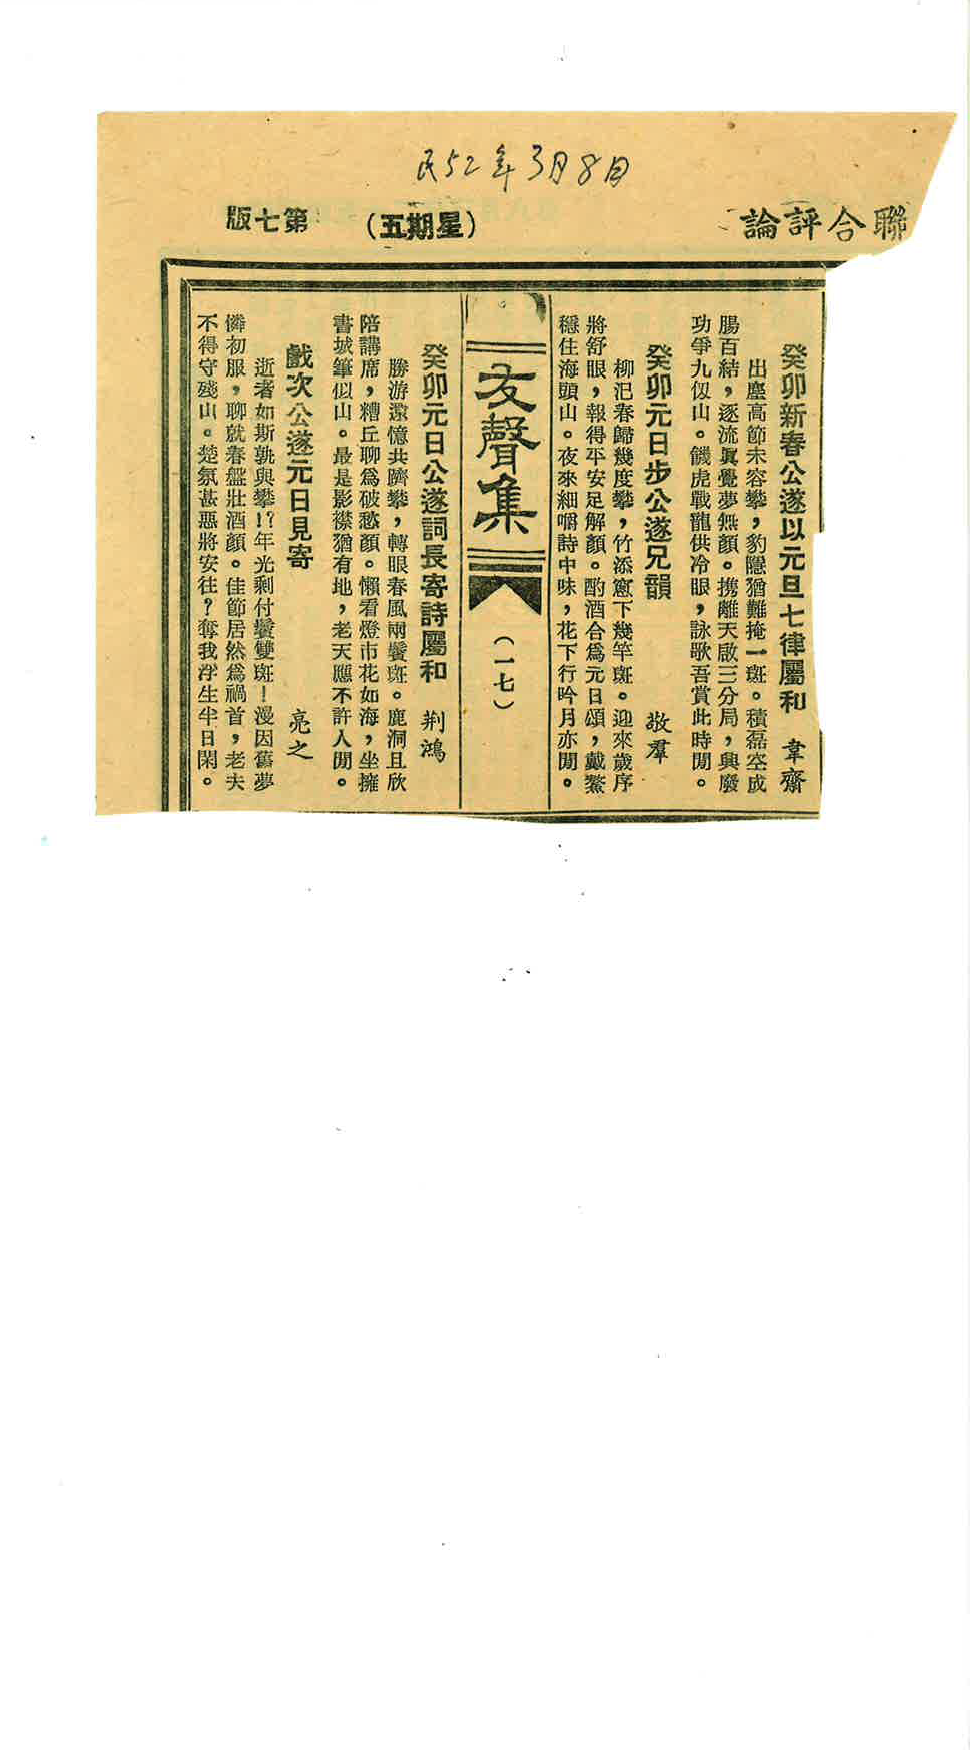 民52年3月8日
聯合評論
（星期五）
第七版
癸卯新春公遂以元旦七律屬和　韋齋
出塵高節未容攀，豹隱猶難掩一斑。積磊空成
腸百結，逐流眞覺夢無顏。攜離天啟三分局，興廢
功爭九仭山。饑虎戰龍供冷眼，詠歌吾賞此時閒。
癸卯元日步公遂兄韻　敬羣
柳汜春歸幾度攀，竹添窻下幾竿斑。迎來歲序
將舒眼，報得平安足解顏。酌酒合爲元日頌，戴鰲
穩住海頭山。夜來細嚼詩中味，花下行吟月亦閒。
友聲集
（一七）
癸卯元日公遂詞長寄詩屬和　荆鴻
勝游遠憶共躋攀，轉眼春風兩鬢斑。鹿洞且欣
陪講席，糟丘聊爲破愁顏。懶看燈市花如海，坐擁
書城筆似山。最是影襟猶有地，老天應不許人閒。
戲次公遂元日見寄　亮之
逝者如斯孰與攀！？年光剩付鬢雙斑！漫因舊夢
憐初服，聊就春盤壯酒顏。佳節居然爲禍首，老夫
不得守殘山。楚氛甚惡將安往？奪我浮生半日閑。